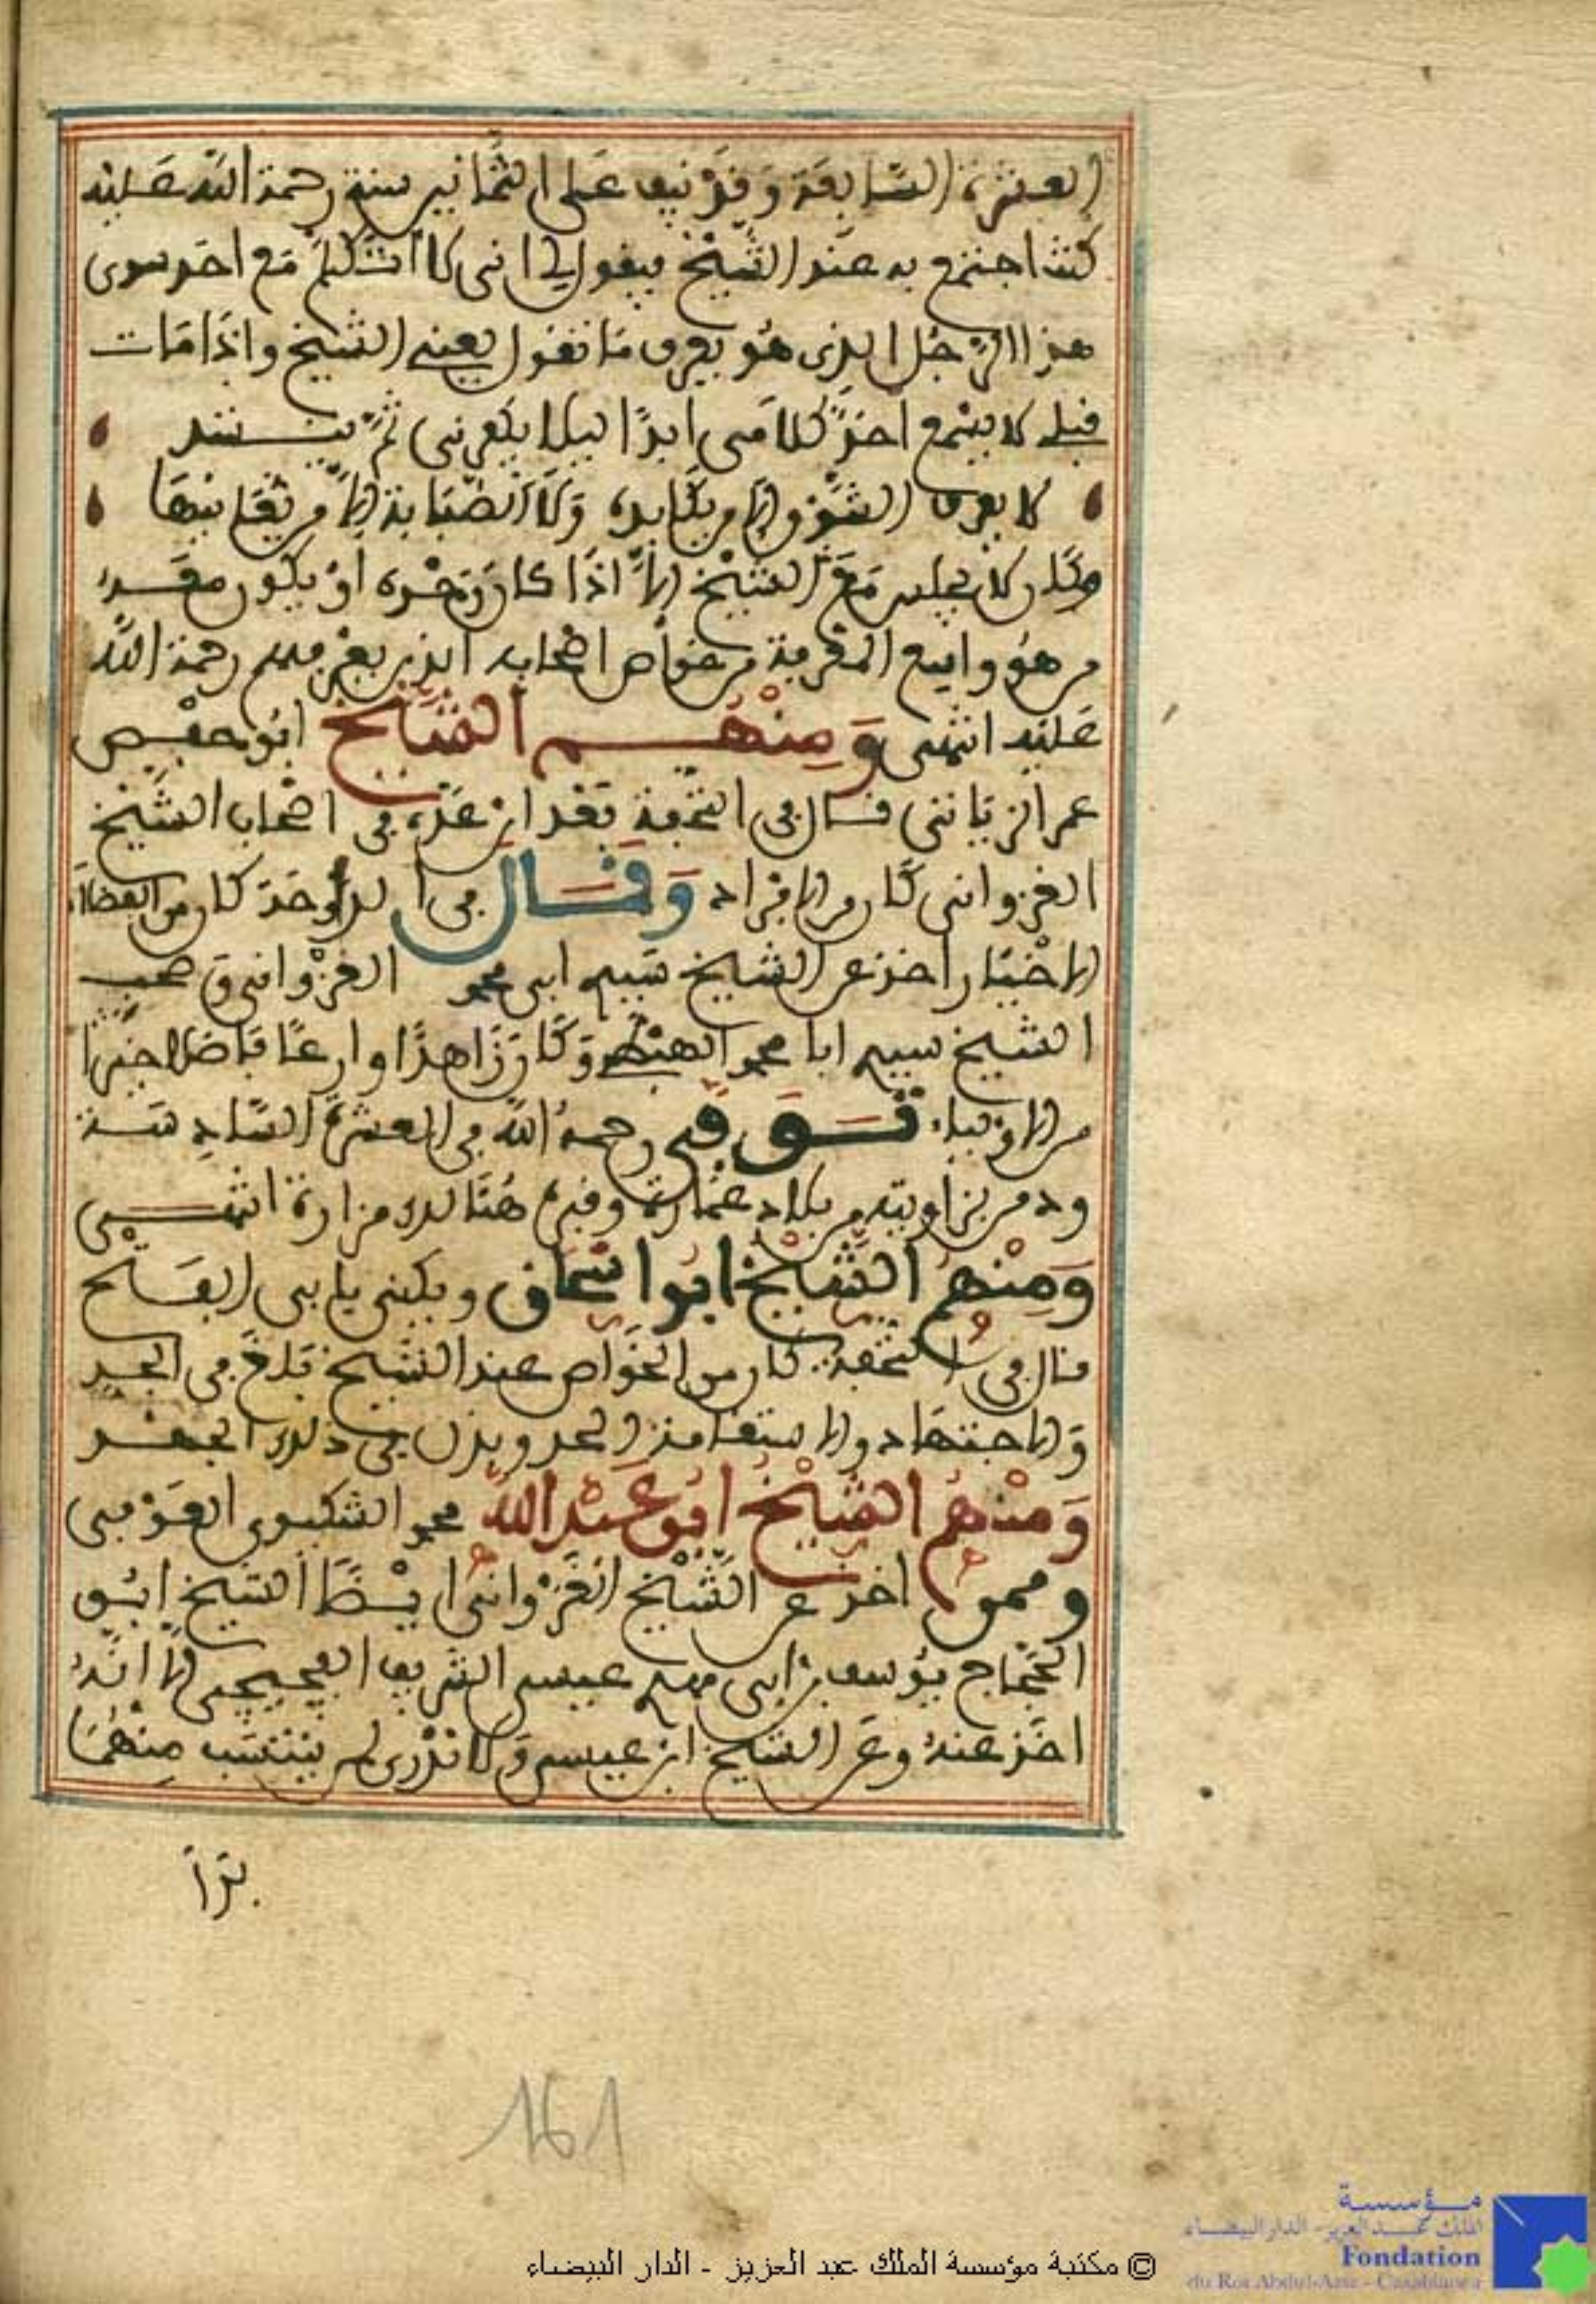 العشرة السابعة وقد نيف على الثمانين سنة رحمة الله عليه
كنت اجتمع به عند الشيخ فيقول لي اني لا اتكلم مع احد سوى
هذا الرجل الذي هو يعرف ما نقول يعني الشيخ واذا مات
قبلي لا يسمع احد كلامي ابدا ليلا يكفرني ثم ينشد
لا يعرف الشوق الا من يكابده ولا الصبابة الا من يعانيها
وكان لا يجلس مع الشيخ الا اذا كان وحده او يكون معه
من هو رابع المقربة من خواص اصحابه الذين يعرفهم رحمة الله
عليه انتهى ومنهم الشيخ ابو حفص
عمر الزياتي قال في التحفة بعد ان عده في اصحاب الشيخ
الغزواني كان من الافراد وقال في الدوحة كان من الفضلاء
الاخيار اخذ عن الشيخ سيدي ابي محمد الغزواني وصحب
الشيخ سيدي ابا محمد الهبطي وكان زاهدا وارعا فاضلا خيرا
من الاولياء توفي رحمه الله في العشرة السادسة
ودفن بزاويته من بلاد غمارة وقبره هنالك مزارة انتهى
ومنهم الشيخ ابو اسحاق ويكنى بابي الفتح
قال في التحفة كان من الخواص عند الشيخ بلغ في الجد
والاجتهاد والاستقامة الحد وبذل في ذلك الجهد
ومنهم الشيخ ابو عبد الله محمد الشكيوي العوفي
وممن اخذ عن الشيخ الغزواني ايضا الشيخ ابو
الحجاج يوسف بن ابي مهدي عيسى الشريف الفجيجي الا انه
اخذ عنه وعن الشيخ ابن عيسى ولا ندري لمن ينتسب منهما
بدا
161
مؤسسة
الملك عبد العزيز - الدار البيضاء
Fondation
du Roi Abdul-Aziz - Casablanca
© مكتبة مؤسسة الملك عبد العزيز - الدار البيضاء